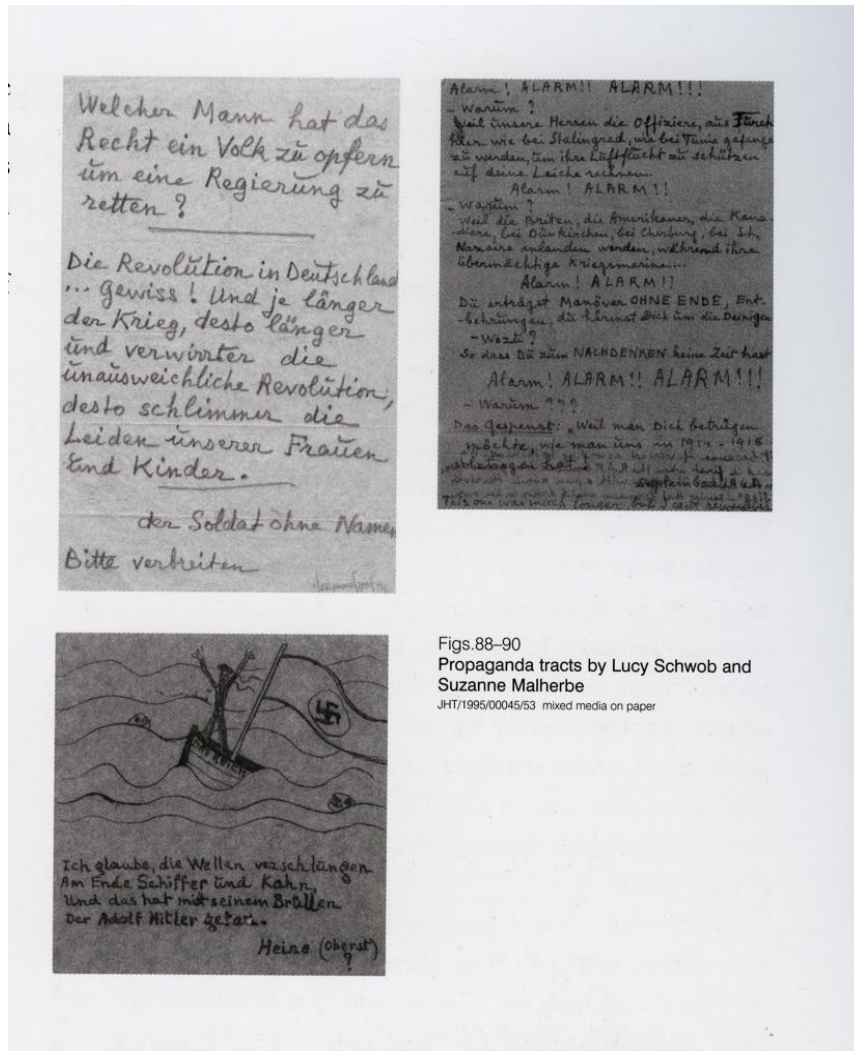 Welcher Mann hat das
Recht ein Volk zu opfern
um eine Regierung zu
retten ?
Die Revolution in Deutschland
... gewiss ! Und je länger
der Krieg, desto länger
und verwirrter die
unausweichliche Revolution,
desto schlimmer die
Leiden unserer Frauen
und Kinder.
der Soldat ohne Namen
Bitte verbreiten
Alarm ! ALARM!! ALARM!!!
- Warum ?
Weil unsere Herren die Offiziere, aus Furch
hier wie bei Stalingrad, wie bei Tunis gefange
zu werden, um ihre Luftflucht zu schützen
auf deine Leiche rechnen.
Alarm ! ALARM!!
- Warum ?
Weil die Briten, die Amerikaner, die Kana-
diere, bei Dünkirchen, bei Cherburg, bei St.
Nazaire anlanden werden, während ihre
übermächtige Kriegsmarine...
Alarm ! ALARM!!
Du erträgst Manöver OHNE ENDE, Ent-
-behrungen, du härmst Dich um die Deinigen
- Wozu ?
So dass Du zum NACHDENKEN keine Zeit hast
Alarm! ALARM!! ALARM!!!
- Warum ???
Das Gespenst: „Weil man Dich betrügen
möchte, wie man uns in 1914 - 1918
hat
This one was much longer but I can't
DAS REICH
Ich glaube, die Wellen verschlungen
Am Ende Schiffer und Kahn,
Und das hat mit seinem Brüllen
Der Adolf Hitler getan.
Heine (Oberst)
?
Figs.88–90
Propaganda tracts by Lucy Schwob and
Suzanne Malherbe
JHT/1995/00045/53 mixed media on paper